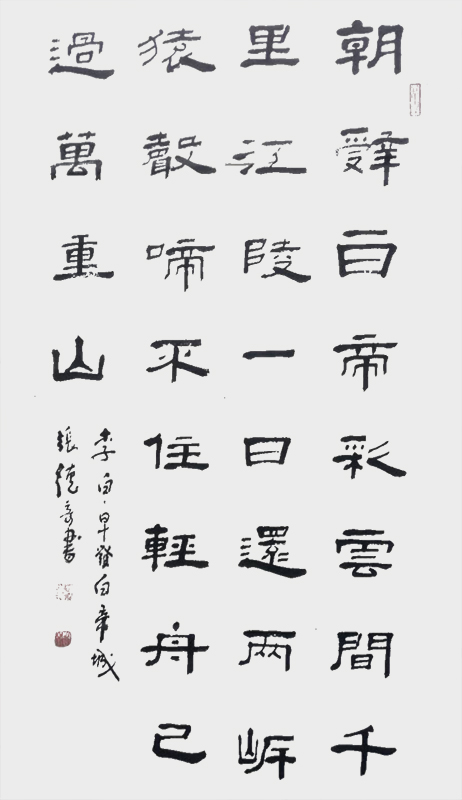 朝辤白帝彩雲間千
里江陵一日還兩岸
猿聲啼不住輕舟已
過萬重山
李白早發白帝城
張德書